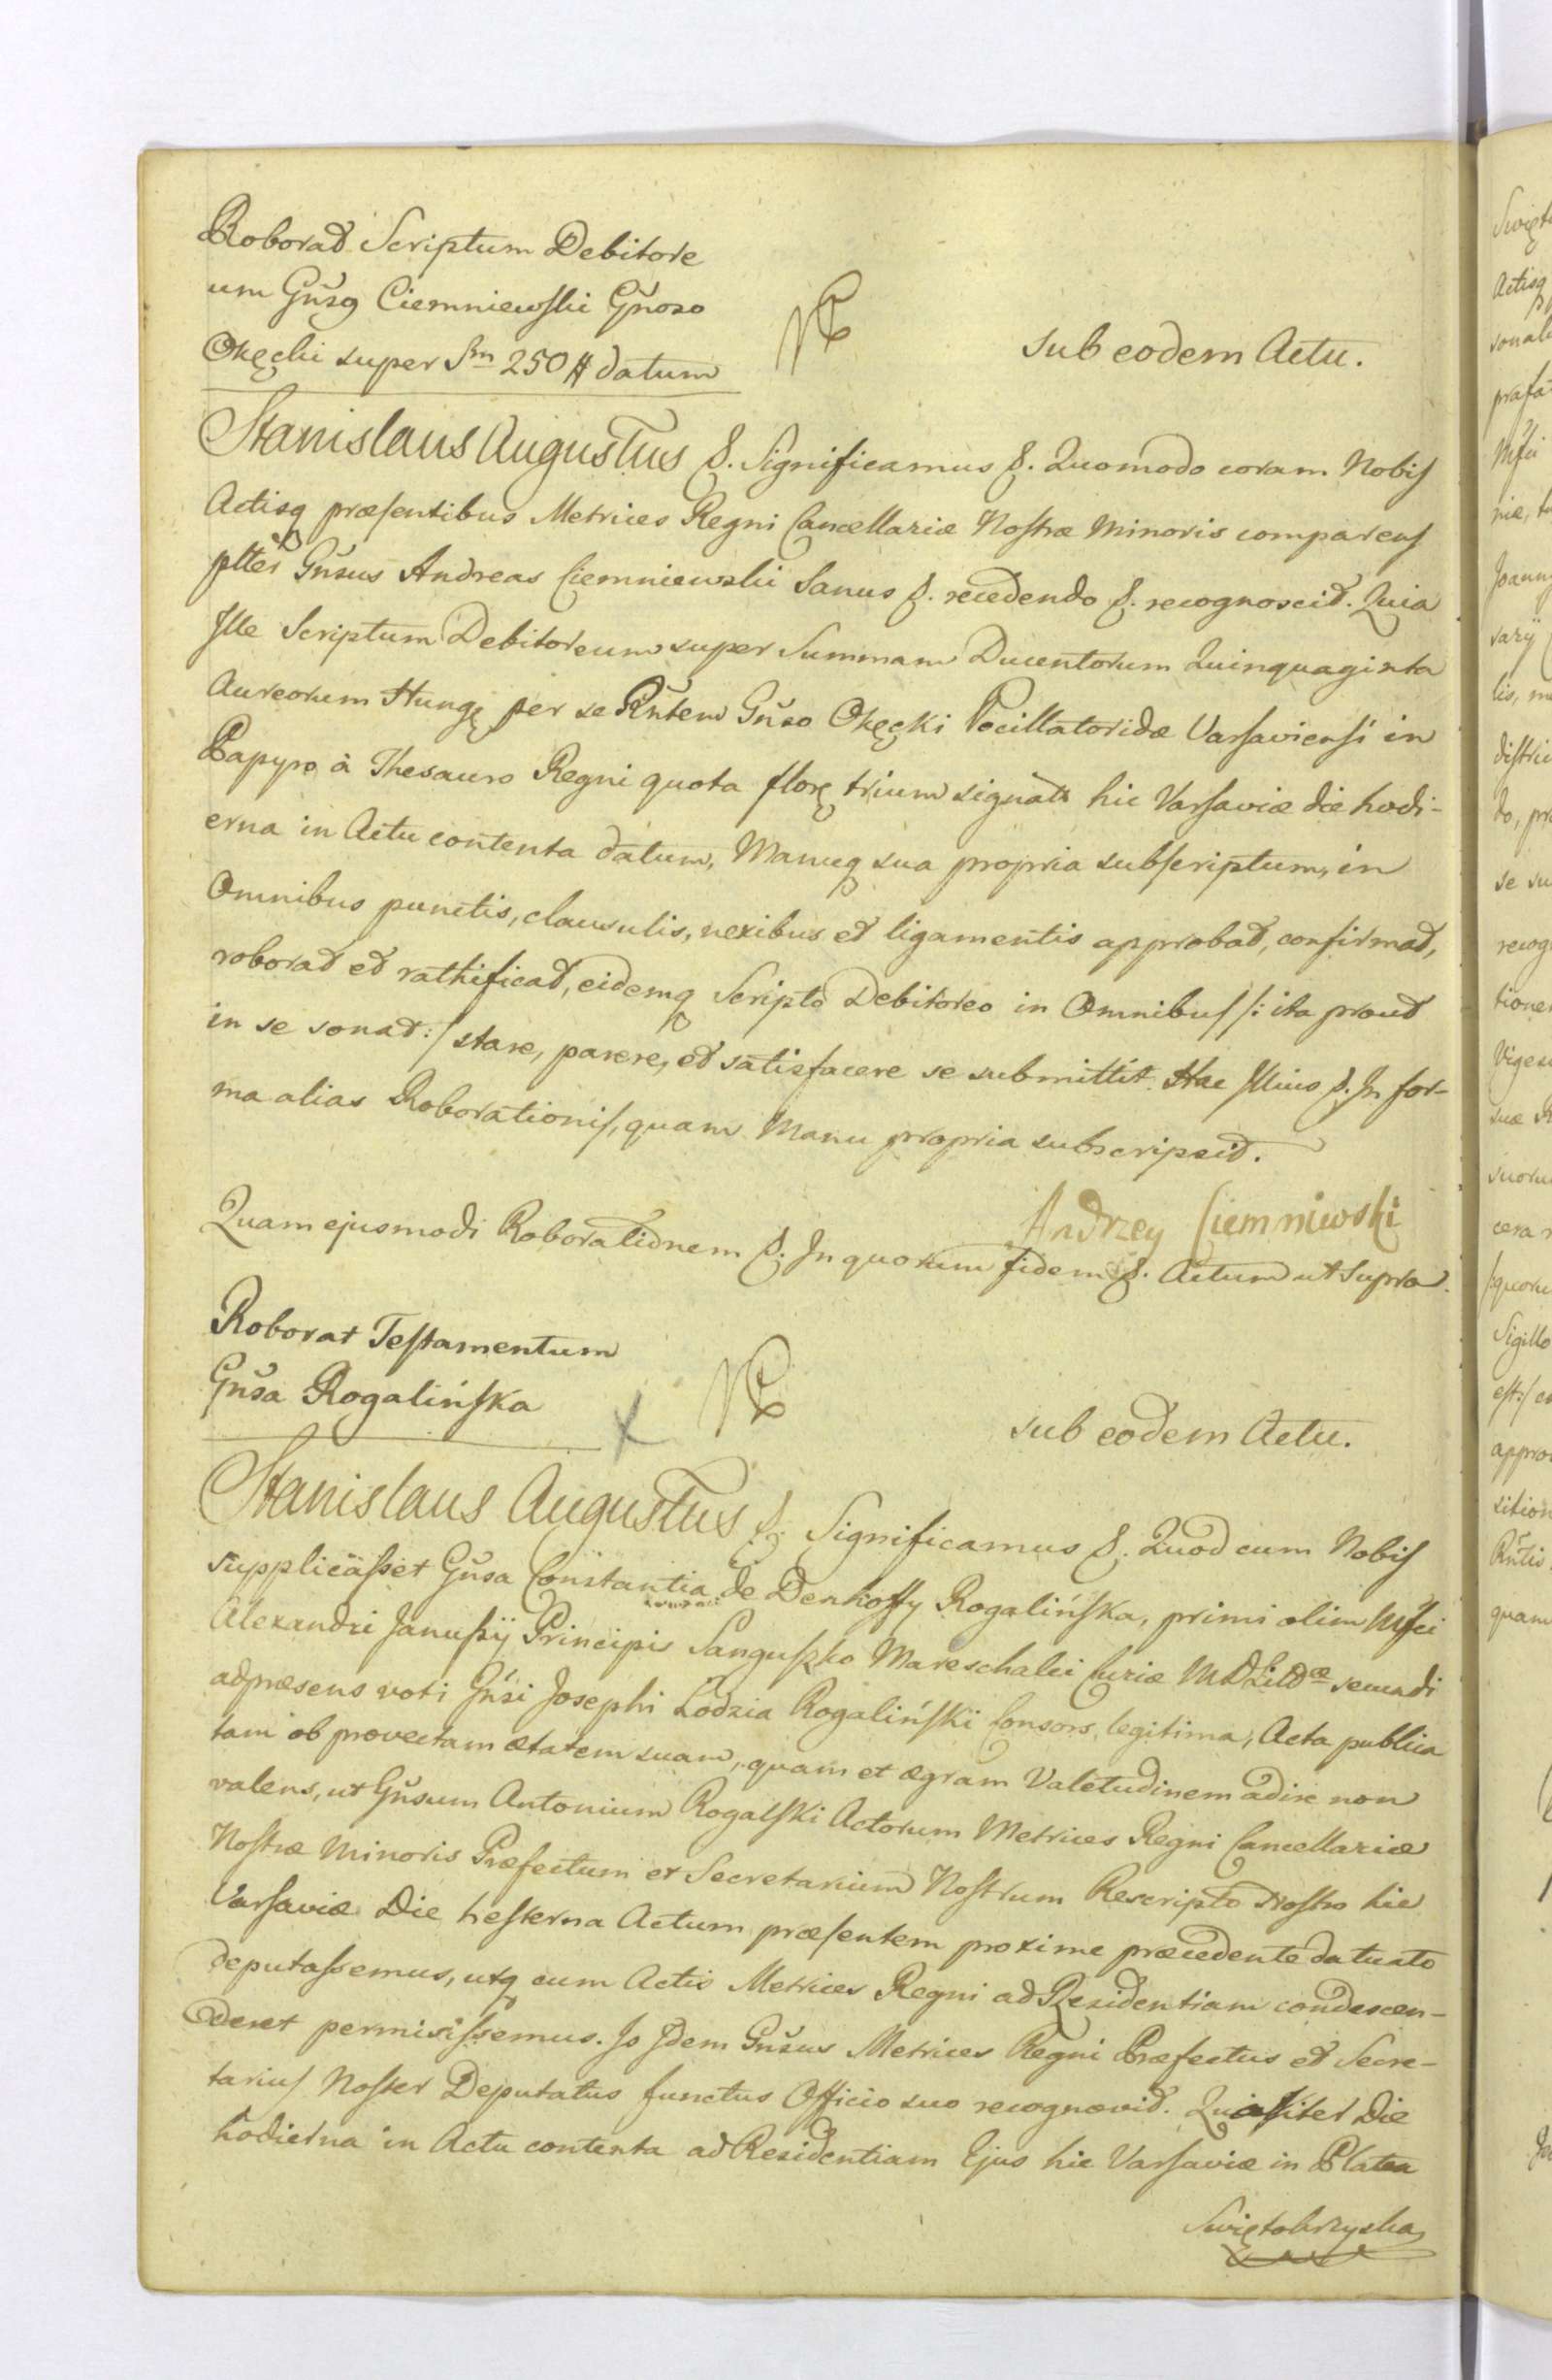 Roborat Scriptum Debitore
um Gnsq Ciemniewski Gnoso
Okęcki super Sm 250 # datum
sub eodem Actu.
Stanislaus Augustus &. Significamus &. Quomodo coram Nobis
Actisq præsentibus Metrices Regni Cancellariæ Nostræ Minoris comparens
pltter Gnsus Andreas Ciemniewski Sanus &. recedendo &. recognoscit. Quia
Ille Scriptum Debitoreum super Summam Ducentorum Quinquaginta
Aureorum Hungę per se Rntem Gnso Okęcki Pocillatoridæ Varsaviensi in
Papyro à Thesauro Regni quota florę trium signata hic Varsaviæ die hodi-
erna in Actu contenta datum, Manuq sua propria subscriptum, in
Omnibus punctis, clausulis, nexibus et ligamentis approbat, confirmat,
roborat et rathificat, eidemq Scripto Debitoreo in Omnibus /: ita prout
in se sonat :/ stare, parere, et satisfacere se submittit. Hac Illius &. In for-
ma alias Roborationis, quam Manu propria subscripsit.
Andrzey Ciemniewski
Quam ejusmodi Roborationem &. In quorum fidem &. Actum ut Supra.
Roborat Testamentum
Gnsa Rogalińska
sub eodem Actu.
Stanislaus Augustus &. Significamus &. Quod cum Nobis
supplicasset Gnsa Constantia de Denhoffy Rogalińska, primi olim Mfci
Alexandri Janusÿ Principis Sanguszko Mareschalci Curiæ M D Litdæ secundi
adpræsens voti Gnsi Josephi Łodzia Rogaliński Consors legitima, Acta publica
tam ob provectam ætatem suam, quam et ægram Valetudinem adire non
valens, ut Gnsum Antonium Rogalski Actorum Metrices Regni Cancellariæ
Nostræ Minoris Præfectum et Secretarium Nostrum Rescripto Nostro hic
Varsaviæ Die hesterna Actum præsentem proxime præcedente datuato
deputassemus, utq cum Actis Metrices Regni ad Rezidentiam condescen-
deret permisissemus. Is Idem Gnsus Metrices Regni Præfectus et Secre-
tarius Noster Deputatus functus Officio suo recognovit. Qualiter Die
hodierna in Actu contenta ad Residentiam Ejus hic Varsaviæ in Platea
Swiętokrzyska